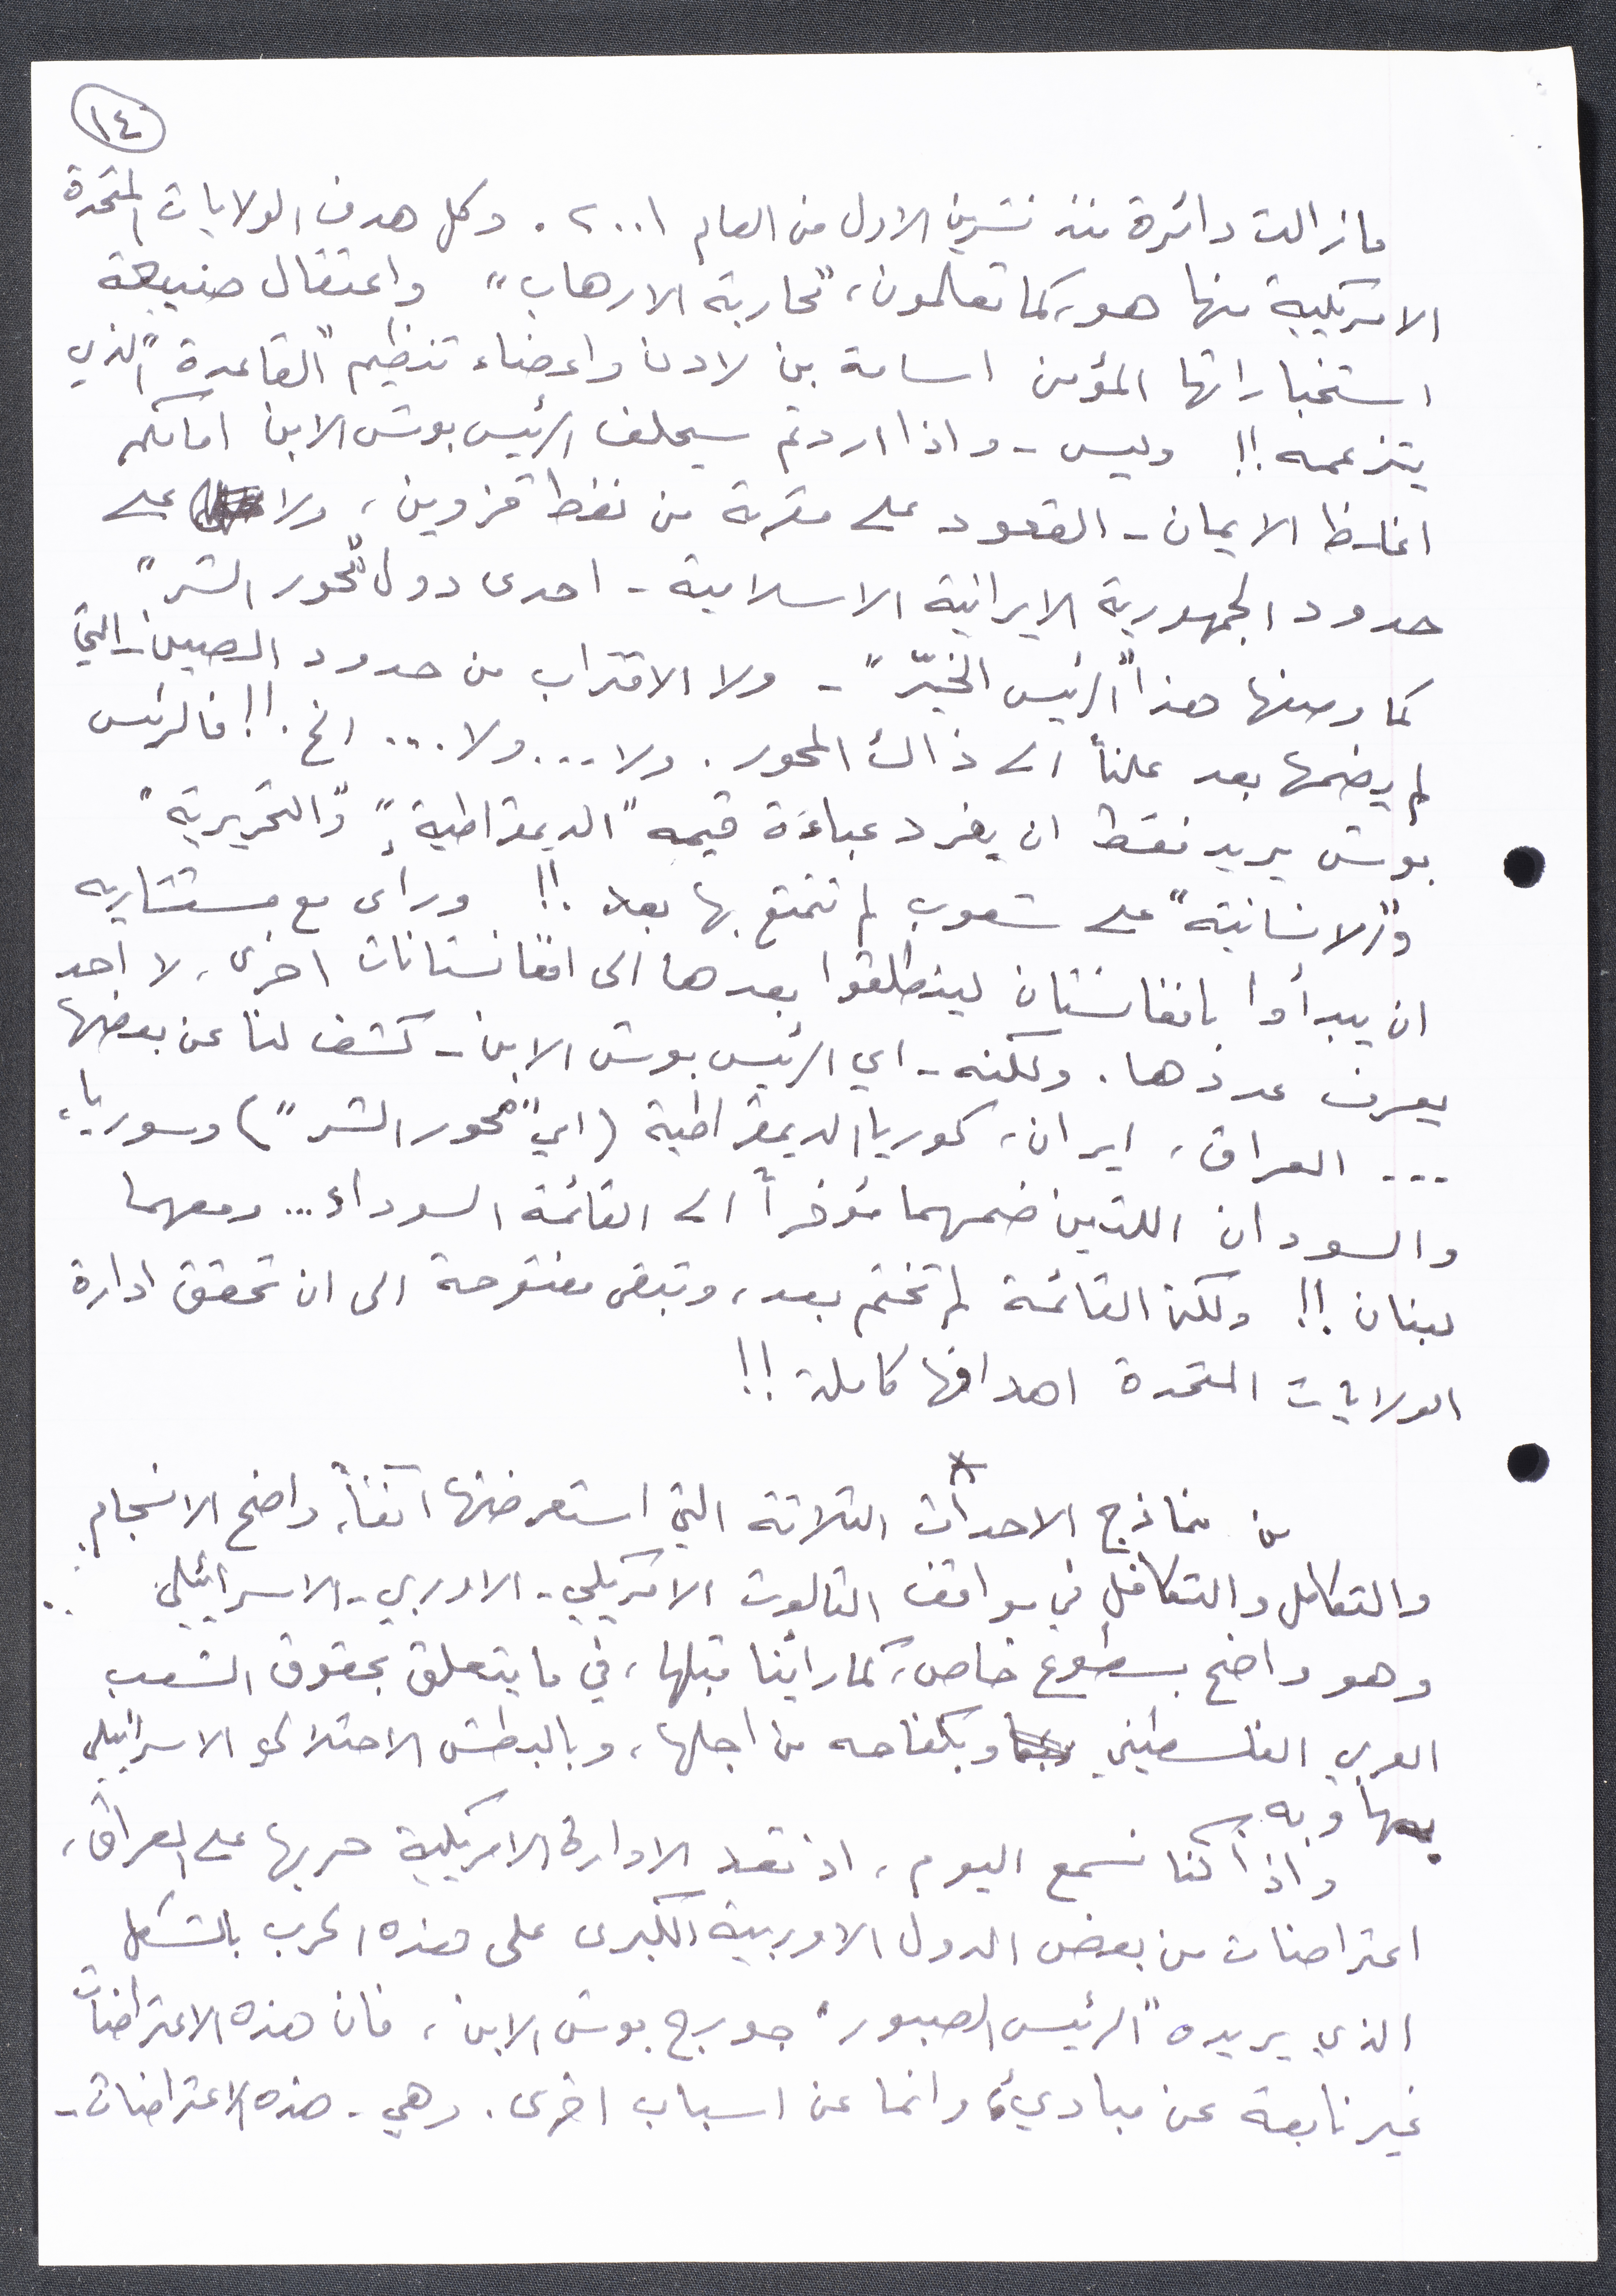 ١٤
مازالت دائرة منذ تشرين الاول من العام ٢٠٠١. وكل هدف الولايات المتحدة
الامريكية منها هو، كما تعلمون، "محاربة الارهاب" واعتقال صنيعة
استخباراتها المؤمن اسامة بن لادن واعضاء تنظيم "القاعدة" الذي
يتزعمه!! وليس - واذا اردتم سيحلف الرئيس بوش الابن امامكم
اغلظ الايمان - القعود على مقربة من نفط قزوين، ولا على
حدود الجمهورية الايرانية الاسلامية - احدى دول "محور الشر"
كما وصفها هذا "الرئيس الخيّر" - ولا الاقتراب من حدود الصين - التي
لم يضمها بعد علناً الى ذاك المحور. ولا... ولا... الخ.!! فالرئيس
بوش يريد فقط ان يفرد عباءة قيمه "الديمقراطية"، و"التحريرية"
و"الانسانية" على شعوب لم تتمتع بها بعد!! ورأى مع مستشاريه
ان يبدأوا بافغانستان لينطلقوا بعدها الى افغانستانات اخرى، لا احد
يعرف عددها. ولكنه - اي الرئيس بوش الابن - كشف لنا عن بعضها
... العراق، ايران، كوريا الديمقراطية (اي "محور الشر") وسوريا،
والسودان اللتين ضمهما مؤخراً الى القائمة السوداء... ومعهما
لبنان!! ولكن القائمة لم تختم بعد، وتبقى مفتوحة الى ان تحقق ادارة
الولايات المتحدة اهدافها كاملة!!
*
من نماذج الاحداث الثلاثة التي استعرضتها آنفاً، واضح الانسجام
والتكامل والتكافل في مواقف الثالوث الامريكي - الاوربي - الاسرائيلي
وهو واضح بسطوع خاص، كما رأينا قبلها، في ما يتعلق بحقوق الشعب
العربي الفلسطيني وبكفاحه من اجلها، وبالبطش الاحتلالي الاسرائيلي
بها وبه.
واذا كنا نسمع اليوم، اذ تعد الادارة الامريكية حربها على العراق،
اعتراضات من بعض الدول الاوربية الكبرى على هذه الحرب بالشكل
الذي يريده "الرئيس الصبور" جورج بوش الابن، فان هذه الاعتراضات
غير نابعة عن مبادئ، وانما عن اسباب اخرى. وهي - هذه الاعتراضات -